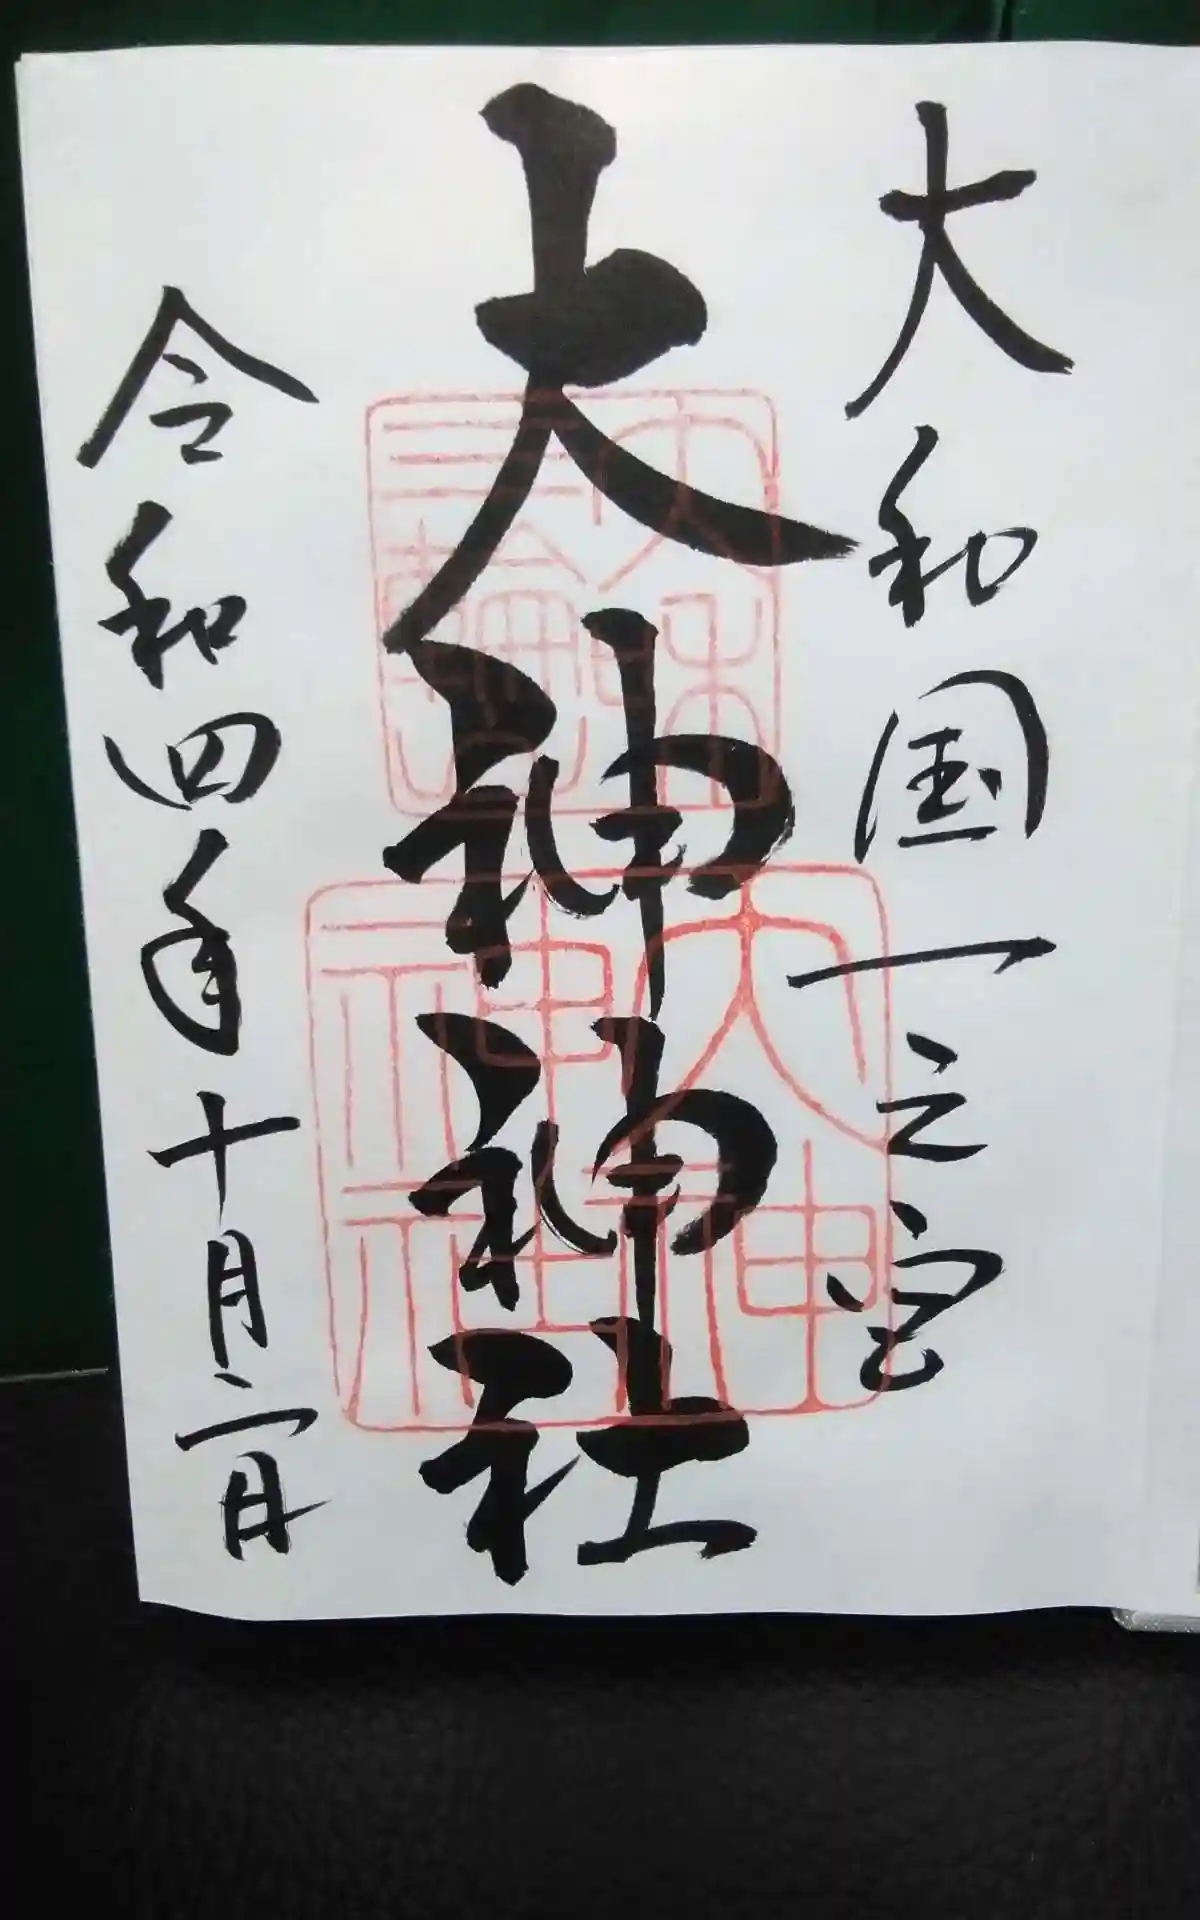 大和国一之宮
大神神社
令和四年十月二日
大和
三輪
大神
神社